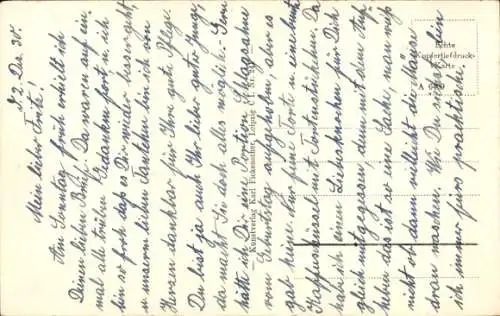 d. 2. Dez. 30.
Mein lieber Fritz!
Am Sonntag früh erhielt ich
Deinen lieben Brief. Da waren auf ein-
mal alle trüben Gedanken fort u. ich
bin so froh daß es Dir wieder besser geht,
u. unserm lieben Tantchen bin ich von
Herzen dankbar für Ihre gute Pflege.
Du bist ja auch Ihr lieber guter Junge,
da macht Sie doch alles möglich. Gern
hätte ich Dir eine Portion Schlagsahne
vom Geburtstag aufgehoben, aber es
gab keine. Nur feine Torte u. eine bunte
Kaffeeschüssel mit Tortenstückchen. Da
hab ich einen Leberknochen für Dich
gleich mitgegessen, denn mit dem Auf-
heben das ist so eine Sache, man weiß
nicht ob dann vielleicht die Mäuse
dran naschen. Wie Du weißt bin
ich immer fürs praktische.
Kunstverlag Karl Fickenscher, Leipzig C 1
Echte
Kupfertiefdruck-
Karte